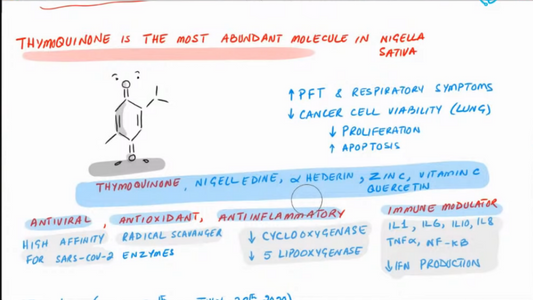 THYMOQUINONE IS THE MOST ABUNDANT MOLECULE IN NIGELLA
SATIVA
↑ PFT & RESPIRATORY SYMPTOMS
↓ CANCER CELL VIABILITY (LUNG)
↓ PROLIFERATION
↑ APOPTOSIS
THYMOQUINONE, NIGELLEDINE, α HEDERIN, ZINC, VITAMIN C
QUERCETIN
ANTIVIRAL, ANTIOXIDANT, ANTIINFLAMMATORY
HIGH AFFINITY
FOR SARS-COV-2
RADICAL SCAVANGER
ENZYMES
↓ CYCLOOXYGENASE
↓ 5 LIPOOXYGENASE
IMMUNE MODULATOR
IL1, IL6, IL10, IL8
TNFα, NF-KB
↓IFN PRODUCTION